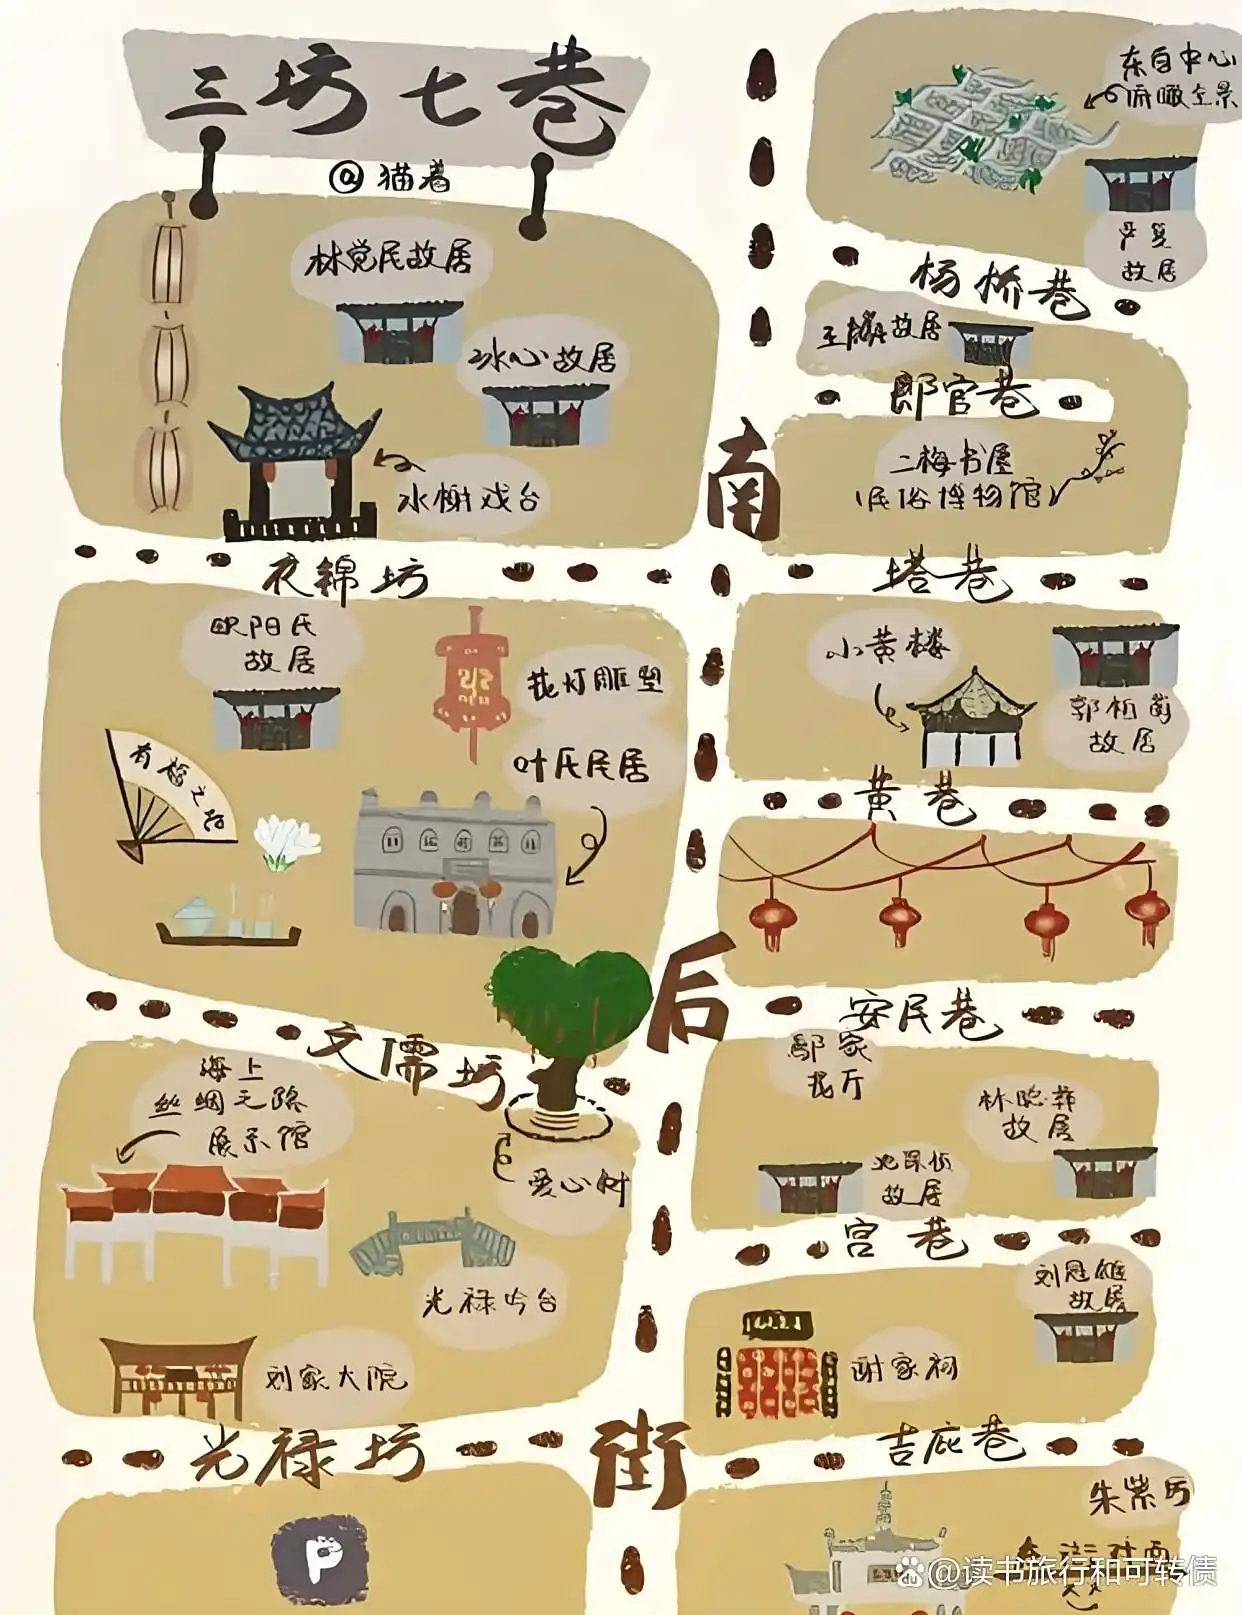 三坊七巷
@猫着
林觉民故居
冰心故居
水榭戏台
衣锦坊
欧阳氏
故居
花灯雕塑
叶氏民居
有福之
文儒坊
海上
丝绸之路
展示馆
爱心树
光禄吟台
刘家大院
光禄坊
P
南
后
街
东百中心
俯瞰全景
严复
故居
杨桥巷
王麒故居
郎官巷
二梅书屋
(民俗博物馆)
塔巷
小黄楼
郭柏荫
故居
黄巷
安民巷
鄢家
花厅
林聪彝
故居
沈葆桢
故居
宫巷
刘冠雄
故居
谢家祠
吉庇巷
朱紫坊
@读书旅行和可转债